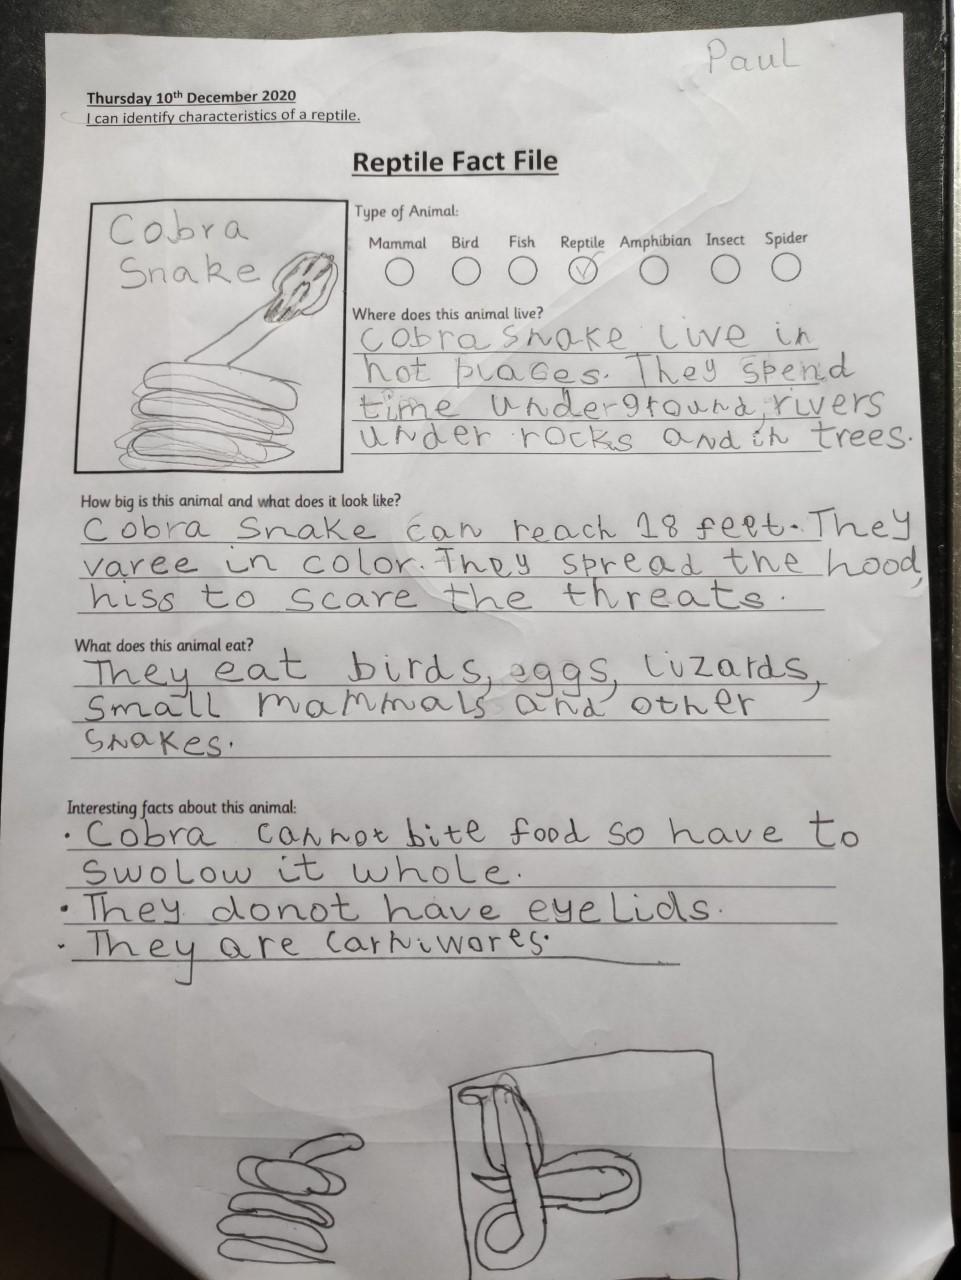 Paul
Thursday 10th December 2020
I can identify characteristics of a reptile.
Reptile Fact File
Cobra
Snake
Type of Animal:
Mammal Bird Fish Reptile Amphibian Insect Spider
Where does this animal live?
Cobra Snake live in
hot places. They spend
time underground, rivers
under rocks and in trees.
How big is this animal and what does it look like?
Cobra Snake can reach 18 feet. They
varee in color. They spread the hood,
hiss to scare the threats.
What does this animal eat?
They eat birds, eggs, lizards,
small mammals and other
snakes.
Interesting facts about this animal:
• Cobra cannot bite food so have to
swolow it whole.
• They donot have eyelids.
• They are carniwores.